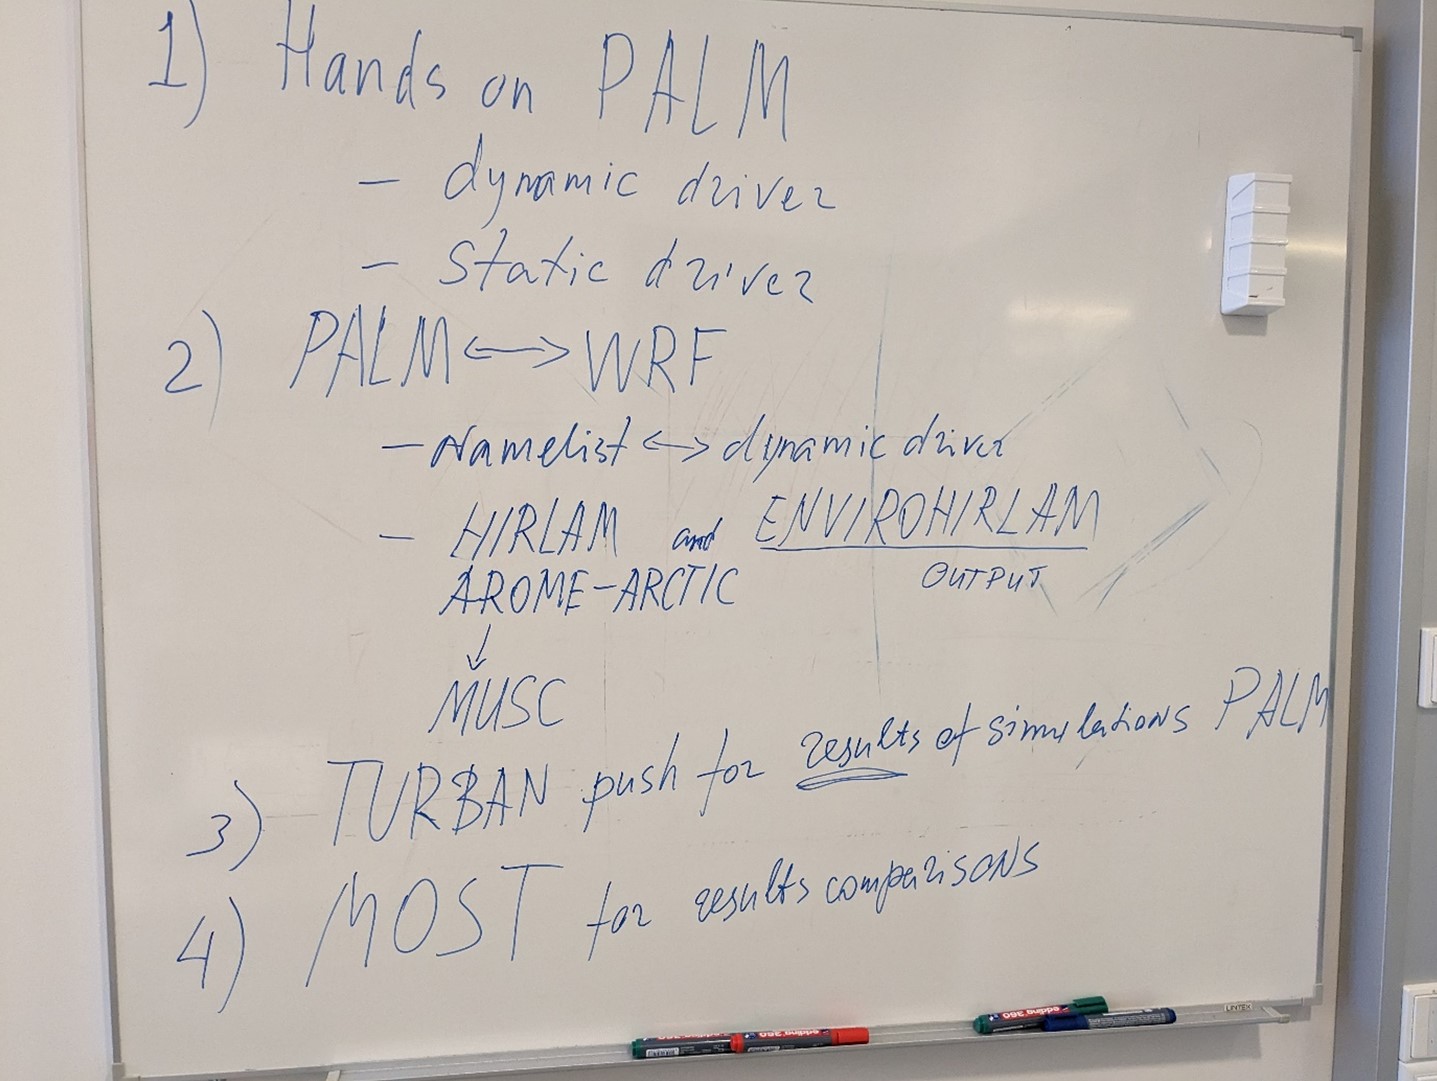 1) Hands on PALM
- dynamic driver
- static driver
2) PALM ↔ WRF
- Namelist ↔ dynamic driver
- HIRLAM and ENVIROHIRLAM
AROME-ARCTIC OUTPUT
↓
MUSC
3) TURBAN push for results of simulations PALM
4) MOST for results comparisons
edding 360
edding 360
edding 360